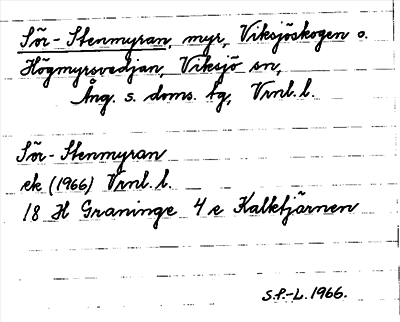 Sör-Stenmyran, myr, Viksjöskogen o.
Högmyrsvedjan, Viksjö sn,
Ång. s. doms. tg, Vrnl. l.
Sör-Stenmyran
ek (1966) Vrnl. l.
18 H Graninge 4 e Kalktjärnen
S.P.-L. 1966.